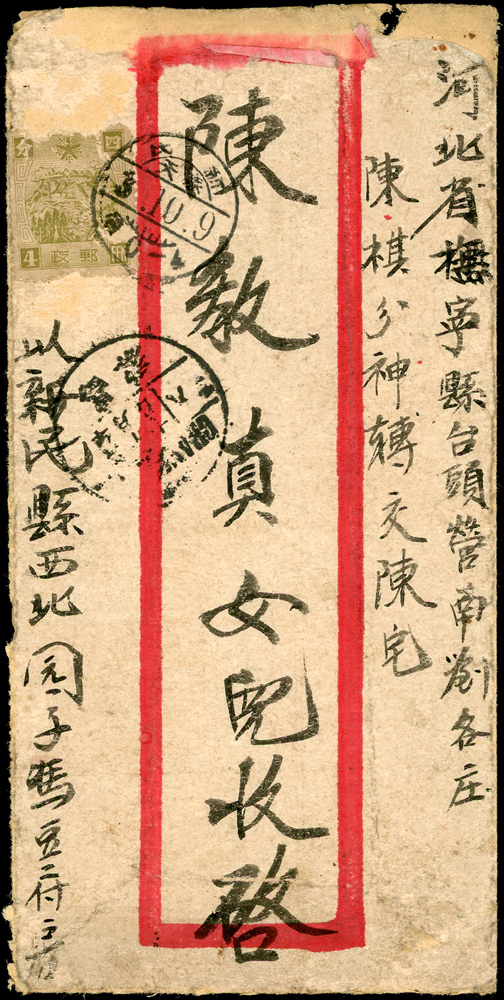 河北省撫寧縣台頭營南劉各庄
陳棋分神轉交陳宅
陳敎貞女兒收啓
四 分
4 政郵 冊
10.9
以新民縣西北园子馬豆付房